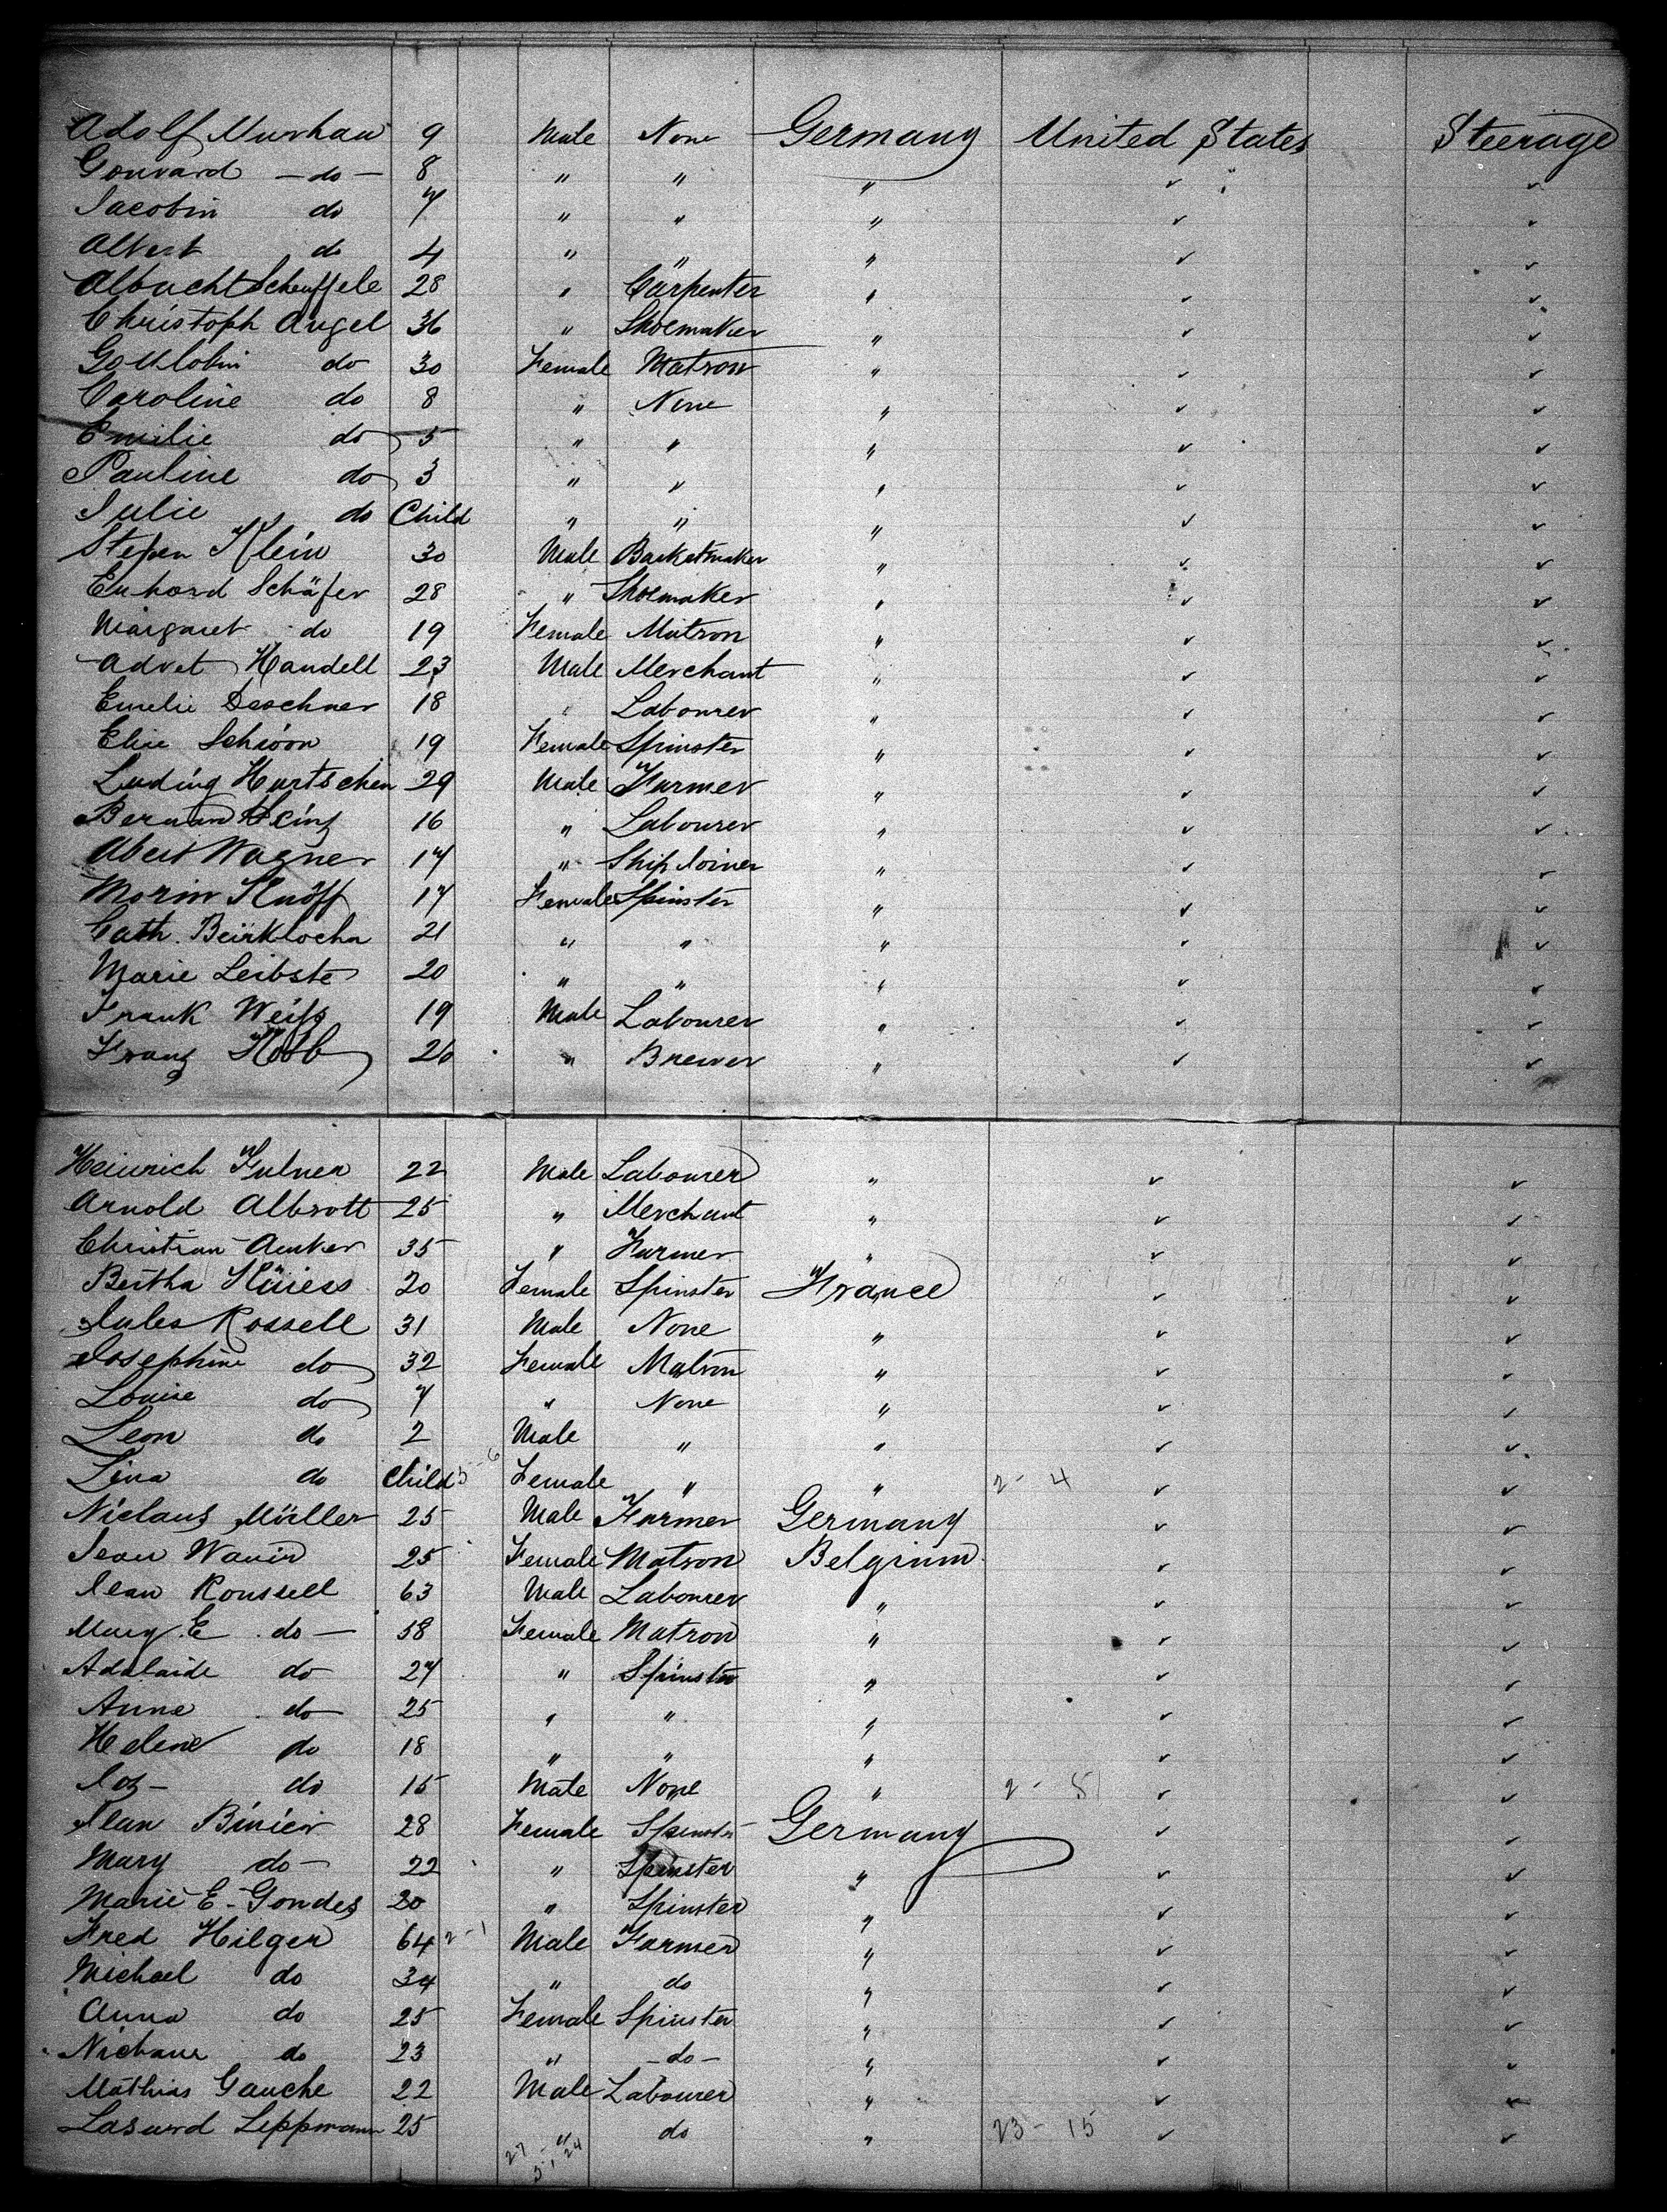 Adolf Murhau 9 Male None Germany United States Steerage
Gouvard - do - 8 " " " ✓ ✓
Jacobin do 7 " " " ✓ ✓
Albert do 4 " " " ✓ ✓
Albrecht Scheuffele 28 " Carpenter " ✓ ✓
Christoph Angel 36 " Shoemaker " ✓ ✓
Gottlobin do 30 Female Matron " ✓ ✓
Caroline do 8 " None " ✓ ✓
Emilie do 5 " " " ✓ ✓
Pauline do 3 " " " ✓ ✓
Julie do Child " " " ✓ ✓
Stepen Klein 30 Male Basketmaker " ✓ ✓
Erhard Schäfer 28 " Shoemaker " ✓ ✓
Margaret do 19 Female Matron " ✓ ✓
Advet Handell 23 Male Merchant " ✓ ✓
Emelie Deschner 18 " Labourer " ✓ ✓
Elise Schöon 19 Female Spinster " ✓ ✓
Luding Hartschen 29 Male Farmer " ✓ ✓
Bernard Heinz 16 " Labourer " ✓ ✓
Abert Wagner 17 " Ship Joiner " ✓ ✓
Morin Knöff 17 Female Spinster " ✓ ✓
Cath. Beirklocha 21 " " " ✓ ✓
Marie Leibste 20 " " " ✓ ✓
Frank Weifs 19 Male Labourer " ✓ ✓
Franz Kobb 26 " Brewer " ✓ ✓
Heinrich Fulner 22 Male Labourer " ✓ ✓
Arnold Albrott 25 " Merchant " ✓ ✓
Christian Anker 35 " Farmer " ✓ ✓
Bertha 20 Female Spinster France ✓ ✓
Jules Rossell 31 Male None " ✓ ✓
Josephine do 32 Female Matron " ✓ ✓
Louise do 7 " None " ✓ ✓
Leon do 2 Male " " ✓ ✓
Lina do Child 5-6 Female " " 2-4 ✓ ✓
Niclaus Müller 25 Male Farmer Germany ✓ ✓
Jean Wauir 25 Female Matron Belgium ✓ ✓
Jean Roussell 63 Male Labourer " ✓ ✓
Mary E do - 58 Female Matron " ✓ ✓
Adalaide do 27 " Spinster " ✓ ✓
Anne do 25 " " " ✓ ✓
Helene do 18 " " " ✓ ✓
Jos- do 15 Male None " 2-5 ✓ ✓
Jean Binier 28 Female Spinster Germany ✓ ✓
Mary do - 22 " Spinster " ✓ ✓
Marie E- Gondes 20 " Spinster " ✓ ✓
Fred Hilger 64 2-1 Male Farmer " ✓ ✓
Michael do 34 " do " ✓ ✓
Anna do 25 Female Spinster " ✓ ✓
do 23 " - do - " ✓ ✓
Mathias Gauche 22 Male Labourer " ✓ ✓
Lasard Leppmann 25 " do " 23-15 ✓ ✓
27 - 24